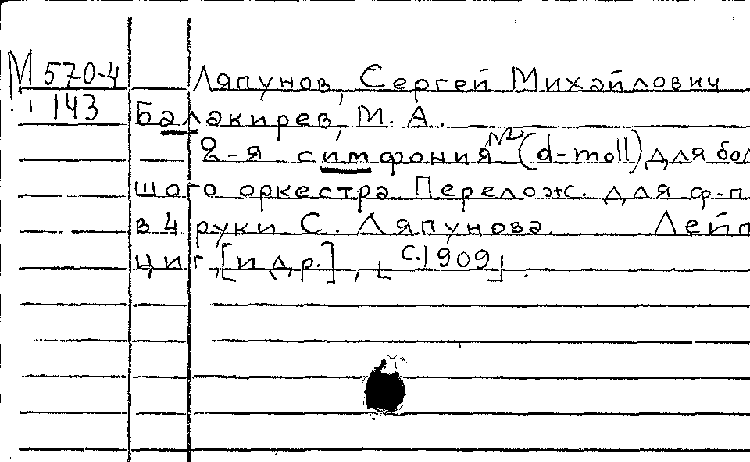 М 570-4 Ляпунов, Сергей Михайлович
143 Балакирев, М. А.
2-я симфония № 2 (d-moll) для бол
шого оркестра Перелож. для ф-п
в 4 руки С. Ляпунова. Лейп
циг, [и др.], [с. 1909].